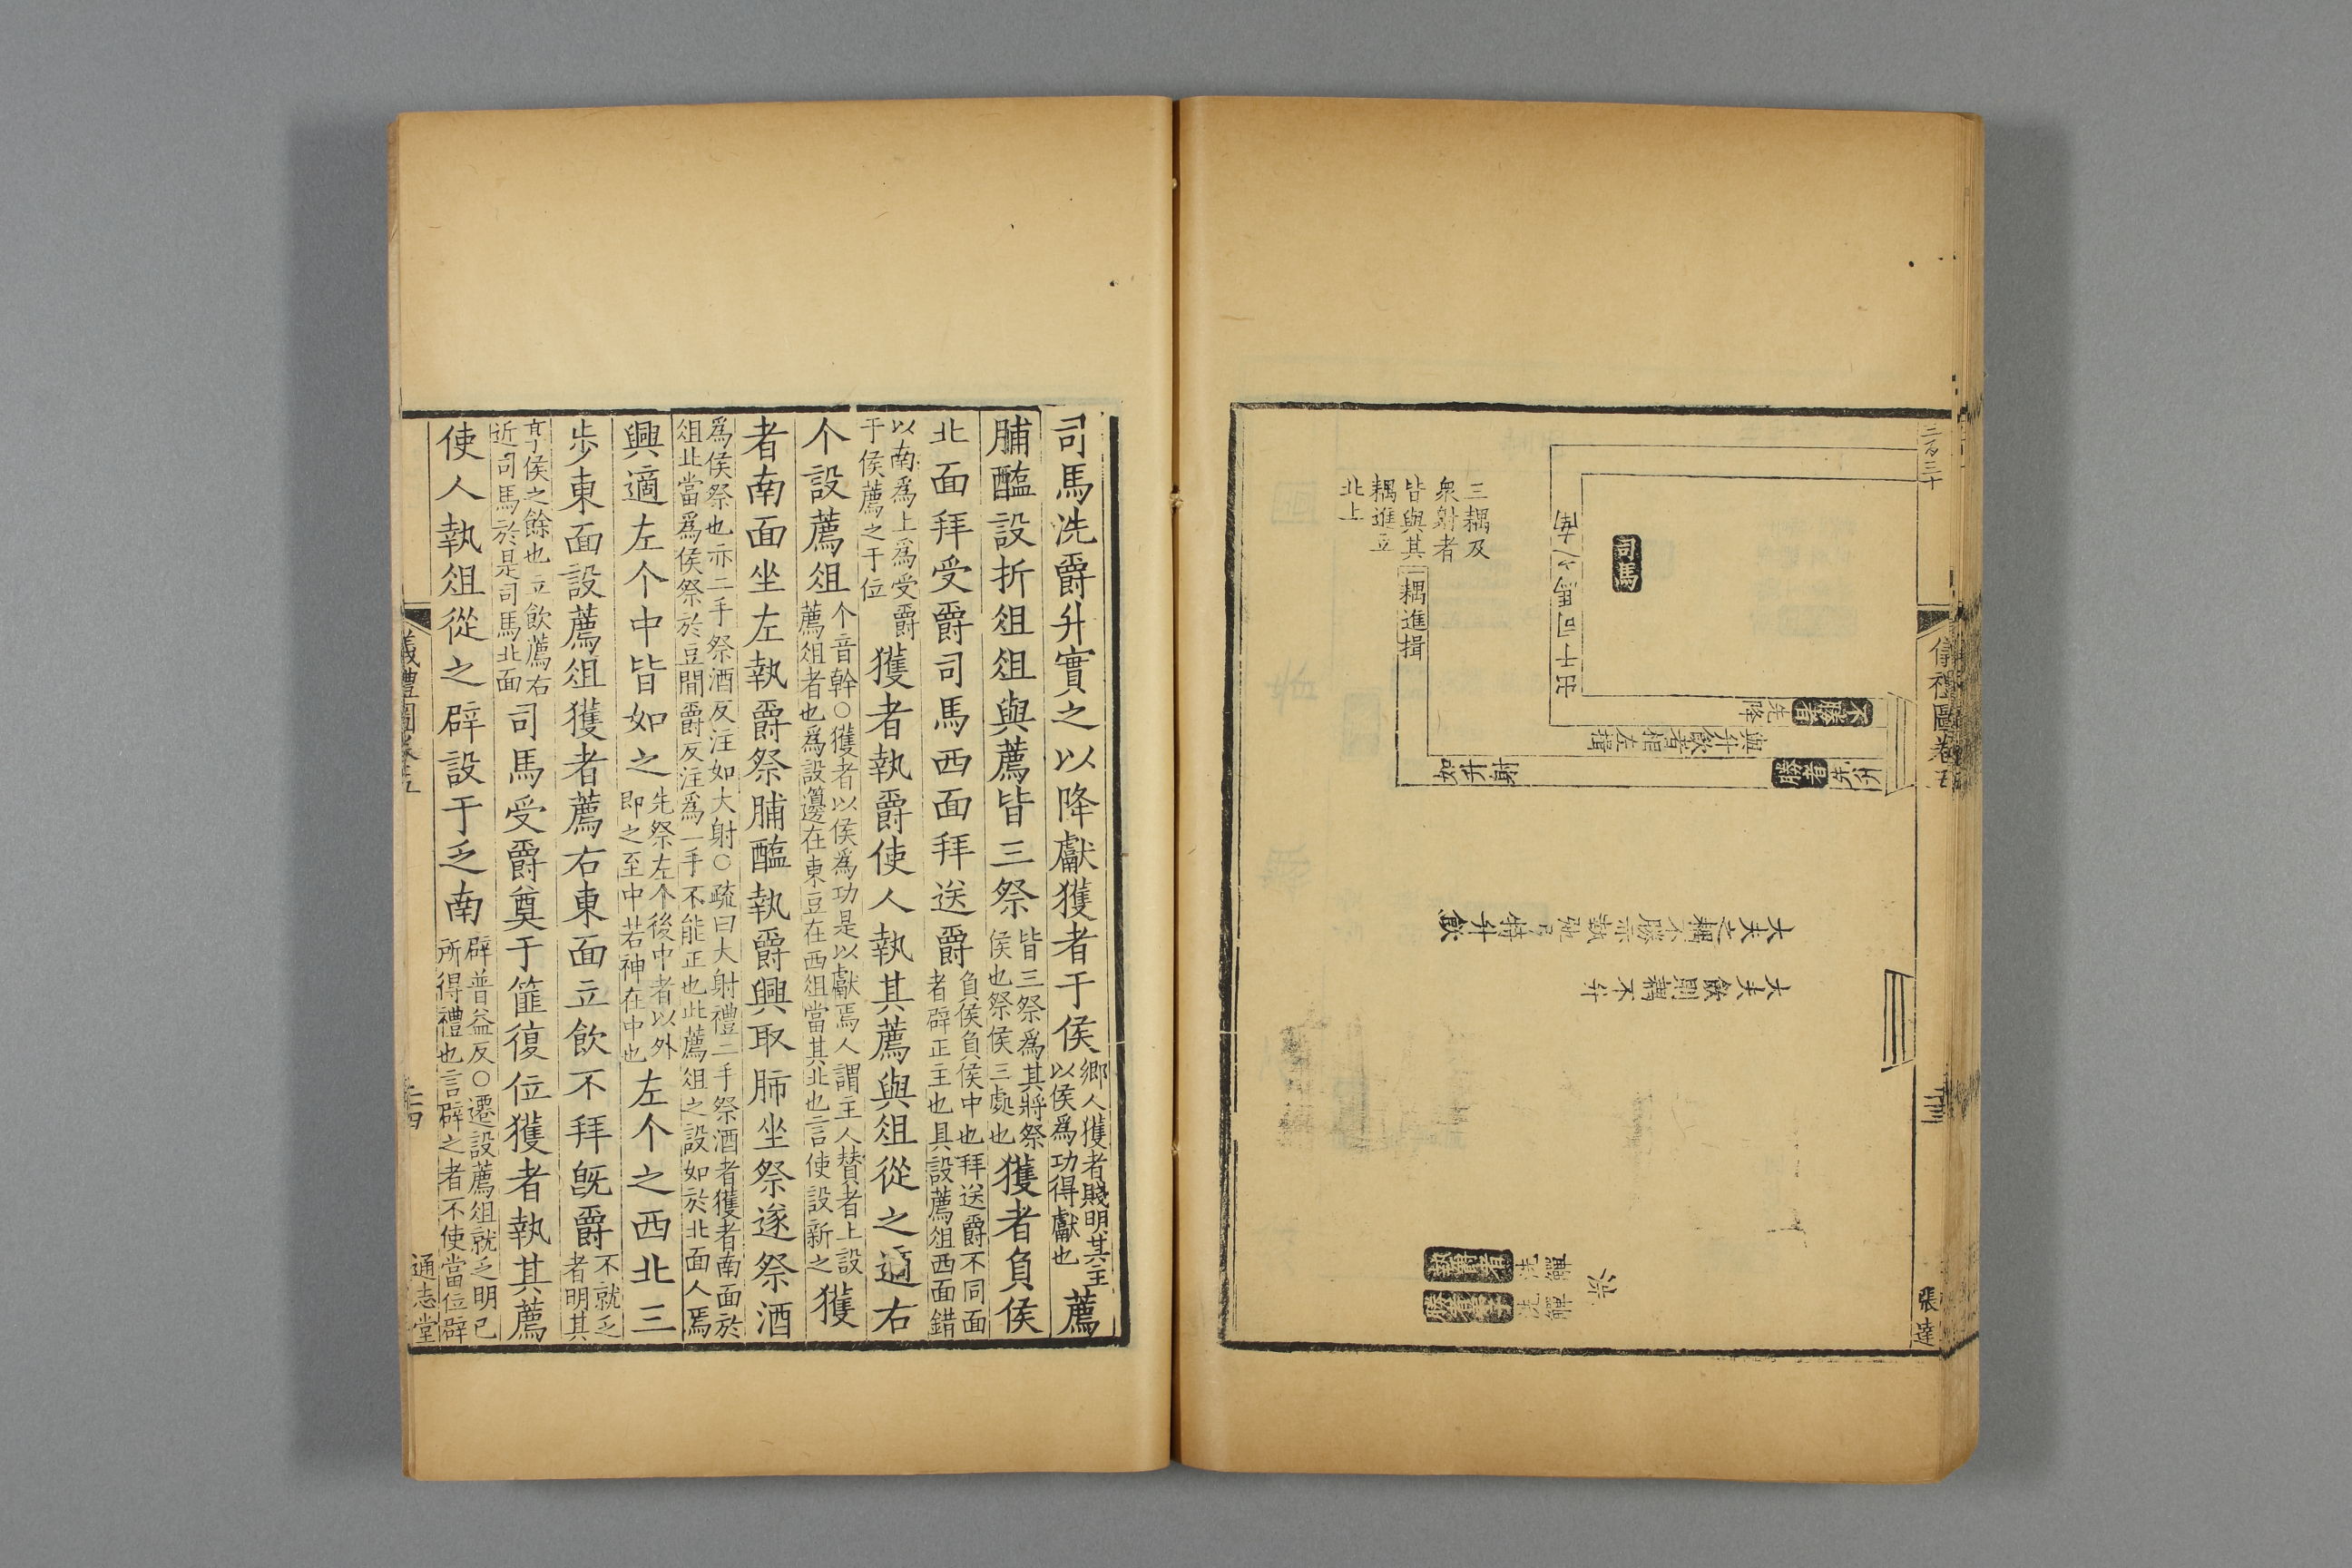 二百三十
儀禮圖卷五
張達
司馬
出于司馬之南
不勝者先降
與升飲者相左揖
三耦及
衆射者
皆與其
耦進立
北上
一耦進揖
大夫之耦不勝亦執弛弓特升飲
大夫飲則耦不升
執爵者
洗
司馬洗爵升實之以降獻獲者于侯鄉人獲者賤明其主以侯爲功得獻也薦
脯醢設折俎俎與薦皆三祭皆三祭爲其將祭侯也祭侯三處也獲者負侯
北面拜受爵司馬西面拜送爵負侯負侯中也拜送爵不同面者辟正主也其設薦俎西面錯
以南爲上爲受爵于侯薦之于位獲者執爵使人執其薦與俎從之適右
个設薦俎个音幹○獲者以侯爲功是以獻焉人謂主人贊者上設薦俎者也爲設籩在東豆在西俎當其北也言使設新之獲
者南面坐左執爵祭脯醢執爵興取肺坐祭遂祭酒
爲侯祭也亦二手祭酒反注如大射○疏曰大射禮二手祭酒者獲者南面於俎北當爲侯祭於豆閒爵反注爲一手不能正也此薦俎之設如於北面人焉
興適左个中皆如之先祭左个後中者以外即之至中若神在中也左个之西北三
步東面設薦俎獲者薦右東面立飲不拜旣爵不就乏者明其
享侯之餘也立飲薦右近司馬於是司馬北面司馬受爵奠于篚復位獲者執其薦
使人執俎從之辟設于乏南辟普益反○遷設薦俎就乏明已所得禮也言辟之者不使當位辟
儀禮圖卷五
二十四
通志堂